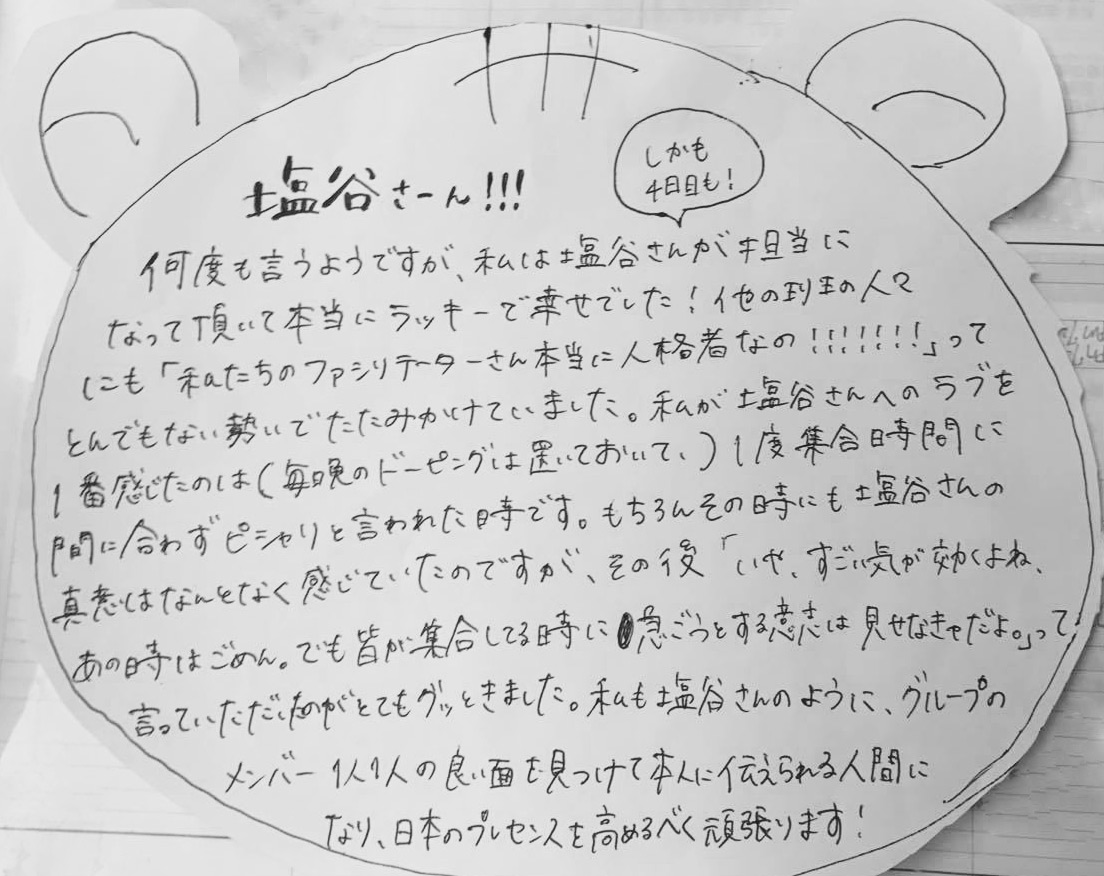 塩谷さーん!!!
しかも
4日目も!
何度も言うようですが、私は塩谷さんが担当に
なって頂いて本当にラッキーで幸せでした!他の班の人々
にも「私たちのファシリテーターさん本当に人格者なの!!!!!!!」って
とんでもない勢いでたたみかけていました。私が塩谷さんへのラブを
1番感じたのは(毎晩のドーピングは置いておいて、)1度集合時間に
間に合わずピシャリと言われた時です。もちろんその時にも塩谷さんの
真意はなんとなく感じていたのですが、その後「いや、すごい気が効くよね、
あの時はごめん。でも皆が集合してる時に急ごうとする意志は見せなきゃだよ。」って
言っていただいたのがとてもグッときました。私も塩谷さんのように、グループの
メンバー1人1人の良い面を見つけて本人に伝えられる人間に
なり、日本のプレセンスを高めるべく頑張ります!